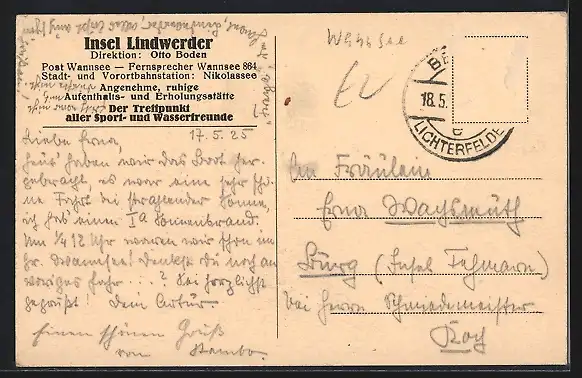 Insel Lindwerder
Direktion: Otto Boden
Post Wannsee — Fernsprecher Wannsee 864
Stadt- und Vorortbahnstation: Nikolassee
Angenehme, ruhige
Aufenthalts- und Erholungsstätte
Der Treffpunkt
aller Sport- und Wasserfreunde
17.5.25
Liebe Erna,
haben wir das Boot her-
gebracht, es war eine sehr schö-
ne Fahrt bei strahlender Sonne,
ich hab einen Ia Sonnenbrand.
Um 1/4 12 Uhr waren wir schon im
gr. Wannsee! Denkst du noch an
voriges Jahr...? Sei herzlichst
gegrüßt! Dein Artur
Einen schönen Gruß
von
18.5.
LICHTERFELDE
Fräulein
Erna
Burg (Insel Fehmarn)
bei Herrn Schmiedemeister